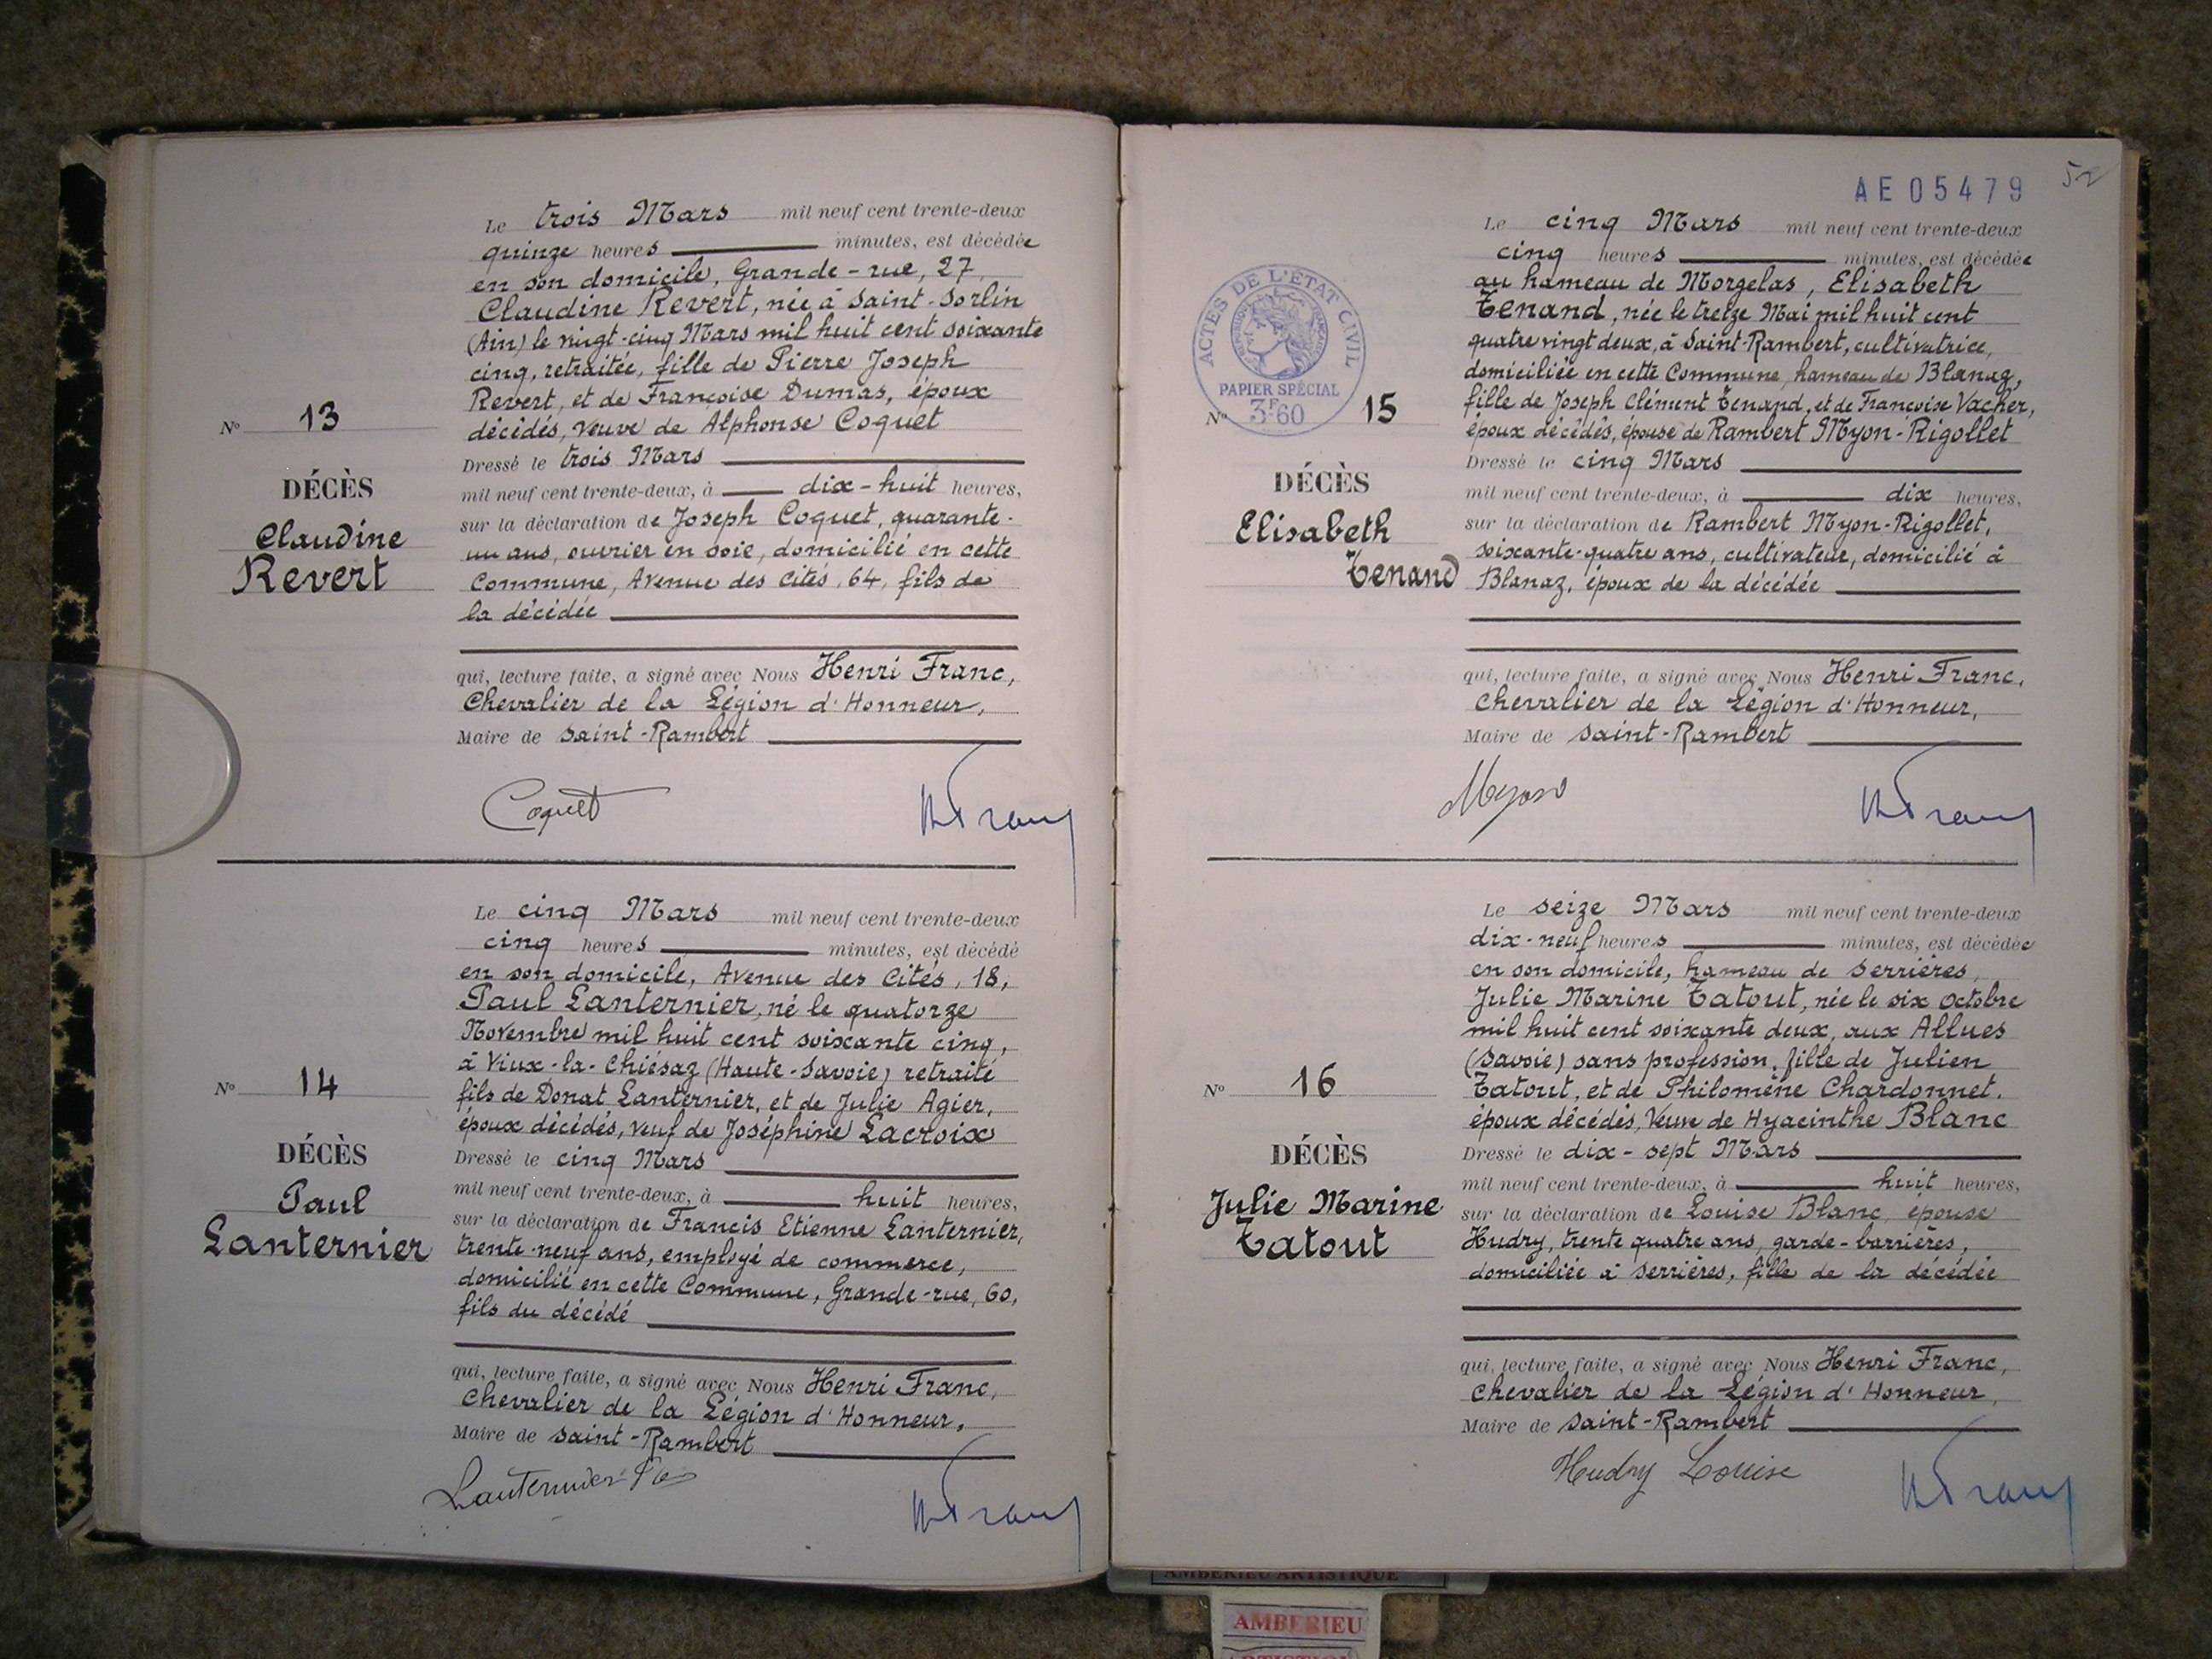 Le trois Mars mil neuf cent trente-deux
quinze heures minutes, est décédée
en son domicile, Grande-rue, 27,
Claudine Revert, née à Saint-Sorlin
(Ain) le vingt-cinq Mars mil huit cent soixante
cinq, retraitée, fille de Pierre Joseph
Revert, et de Françoise Dumas, époux
décédés, veuve de Alphonse Coquet
Nº 13
DÉCÈS
Claudine
Revert
Dressé le trois Mars
mil neuf cent trente-deux, à dix-huit heures,
sur la déclaration de Joseph Coquet, quarante-
un ans, ouvrier en soie, domicilié en cette
Commune, Avenue des Cités, 64, fils de
la décédée
qui, lecture faite, a signé avec Nous Henri Franc,
Chevalier de la Légion d'Honneur,
Maire de Saint-Rambert
Coquet
H Franc
Le cinq Mars mil neuf cent trente-deux
cinq heures minutes, est décédé
en son domicile, Avenue des Cités, 18,
Paul Lanternier, né le quatorze
Novembre mil huit cent soixante cinq,
à Viux-la-Chiésaz (Haute-Savoie) retraité
fils de Donat Lanternier, et de Julie Agier,
époux décédés, veuf de Joséphine Lacroix
Nº 14
DÉCÈS
Paul
Lanternier
Dressé le cinq Mars
mil neuf cent trente-deux, à huit heures,
sur la déclaration de Francis Etienne Lanternier,
trente-neuf ans, employé de commerce,
domicilié en cette Commune, Grande-rue, 60,
fils du décédé
qui, lecture faite, a signé avec Nous Henri Franc,
Chevalier de la Légion d'Honneur,
Maire de Saint-Rambert
Lanternier
H Franc
AE05479
52
Le cinq Mars mil neuf cent trente-deux
cinq heures minutes, est décédée
au hameau de Morgelas, Elisabeth
Tenand, née le treize Mai mil huit cent
quatre vingt deux, à Saint-Rambert, cultivatrice,
domiciliée en cette Commune, hameau de Blanaz,
fille de Joseph Clément Tenand, et de Françoise Vacher,
époux décédés, épouse de Rambert Myon-Rigollet
ACTES DE L'ÉTAT CIVIL
RÉPUBLIQUE FRANÇAISE
PAPIER SPÉCIAL
3F60
Nº 15
DÉCÈS
Elisabeth
Tenand
Dressé le cinq Mars
mil neuf cent trente-deux, à dix heures,
sur la déclaration de Rambert Myon-Rigollet,
soixante-quatre ans, cultivateur, domicilié à
Blanaz, époux de la décédée
qui, lecture faite, a signé avec Nous Henri Franc,
Chevalier de la Légion d'Honneur,
Maire de Saint-Rambert
Myon
H Franc
Le seize Mars mil neuf cent trente-deux
dix-neuf heures minutes, est décédée
en son domicile, hameau de Serrières,
Julie Marine Tatout, née le six Octobre
mil huit cent soixante deux, aux Allues
(Savoie) sans profession, fille de Julien
Tatout, et de Philomène Chardonnet,
époux décédés, Veuve de Hyacinthe Blanc
Nº 16
DÉCÈS
Julie Marine
Tatout
Dressé le dix-sept Mars
mil neuf cent trente-deux, à huit heures,
sur la déclaration de Louise Blanc, épouse
Hudry, trente quatre ans, garde-barrières,
domiciliée à Serrières, fille de la décédée
qui, lecture faite, a signé avec Nous Henri Franc,
Chevalier de la Légion d'Honneur,
Maire de Saint-Rambert
Hudry Louise
H Franc
AMBERIEU ARTISTIQUE
AMBERIEU